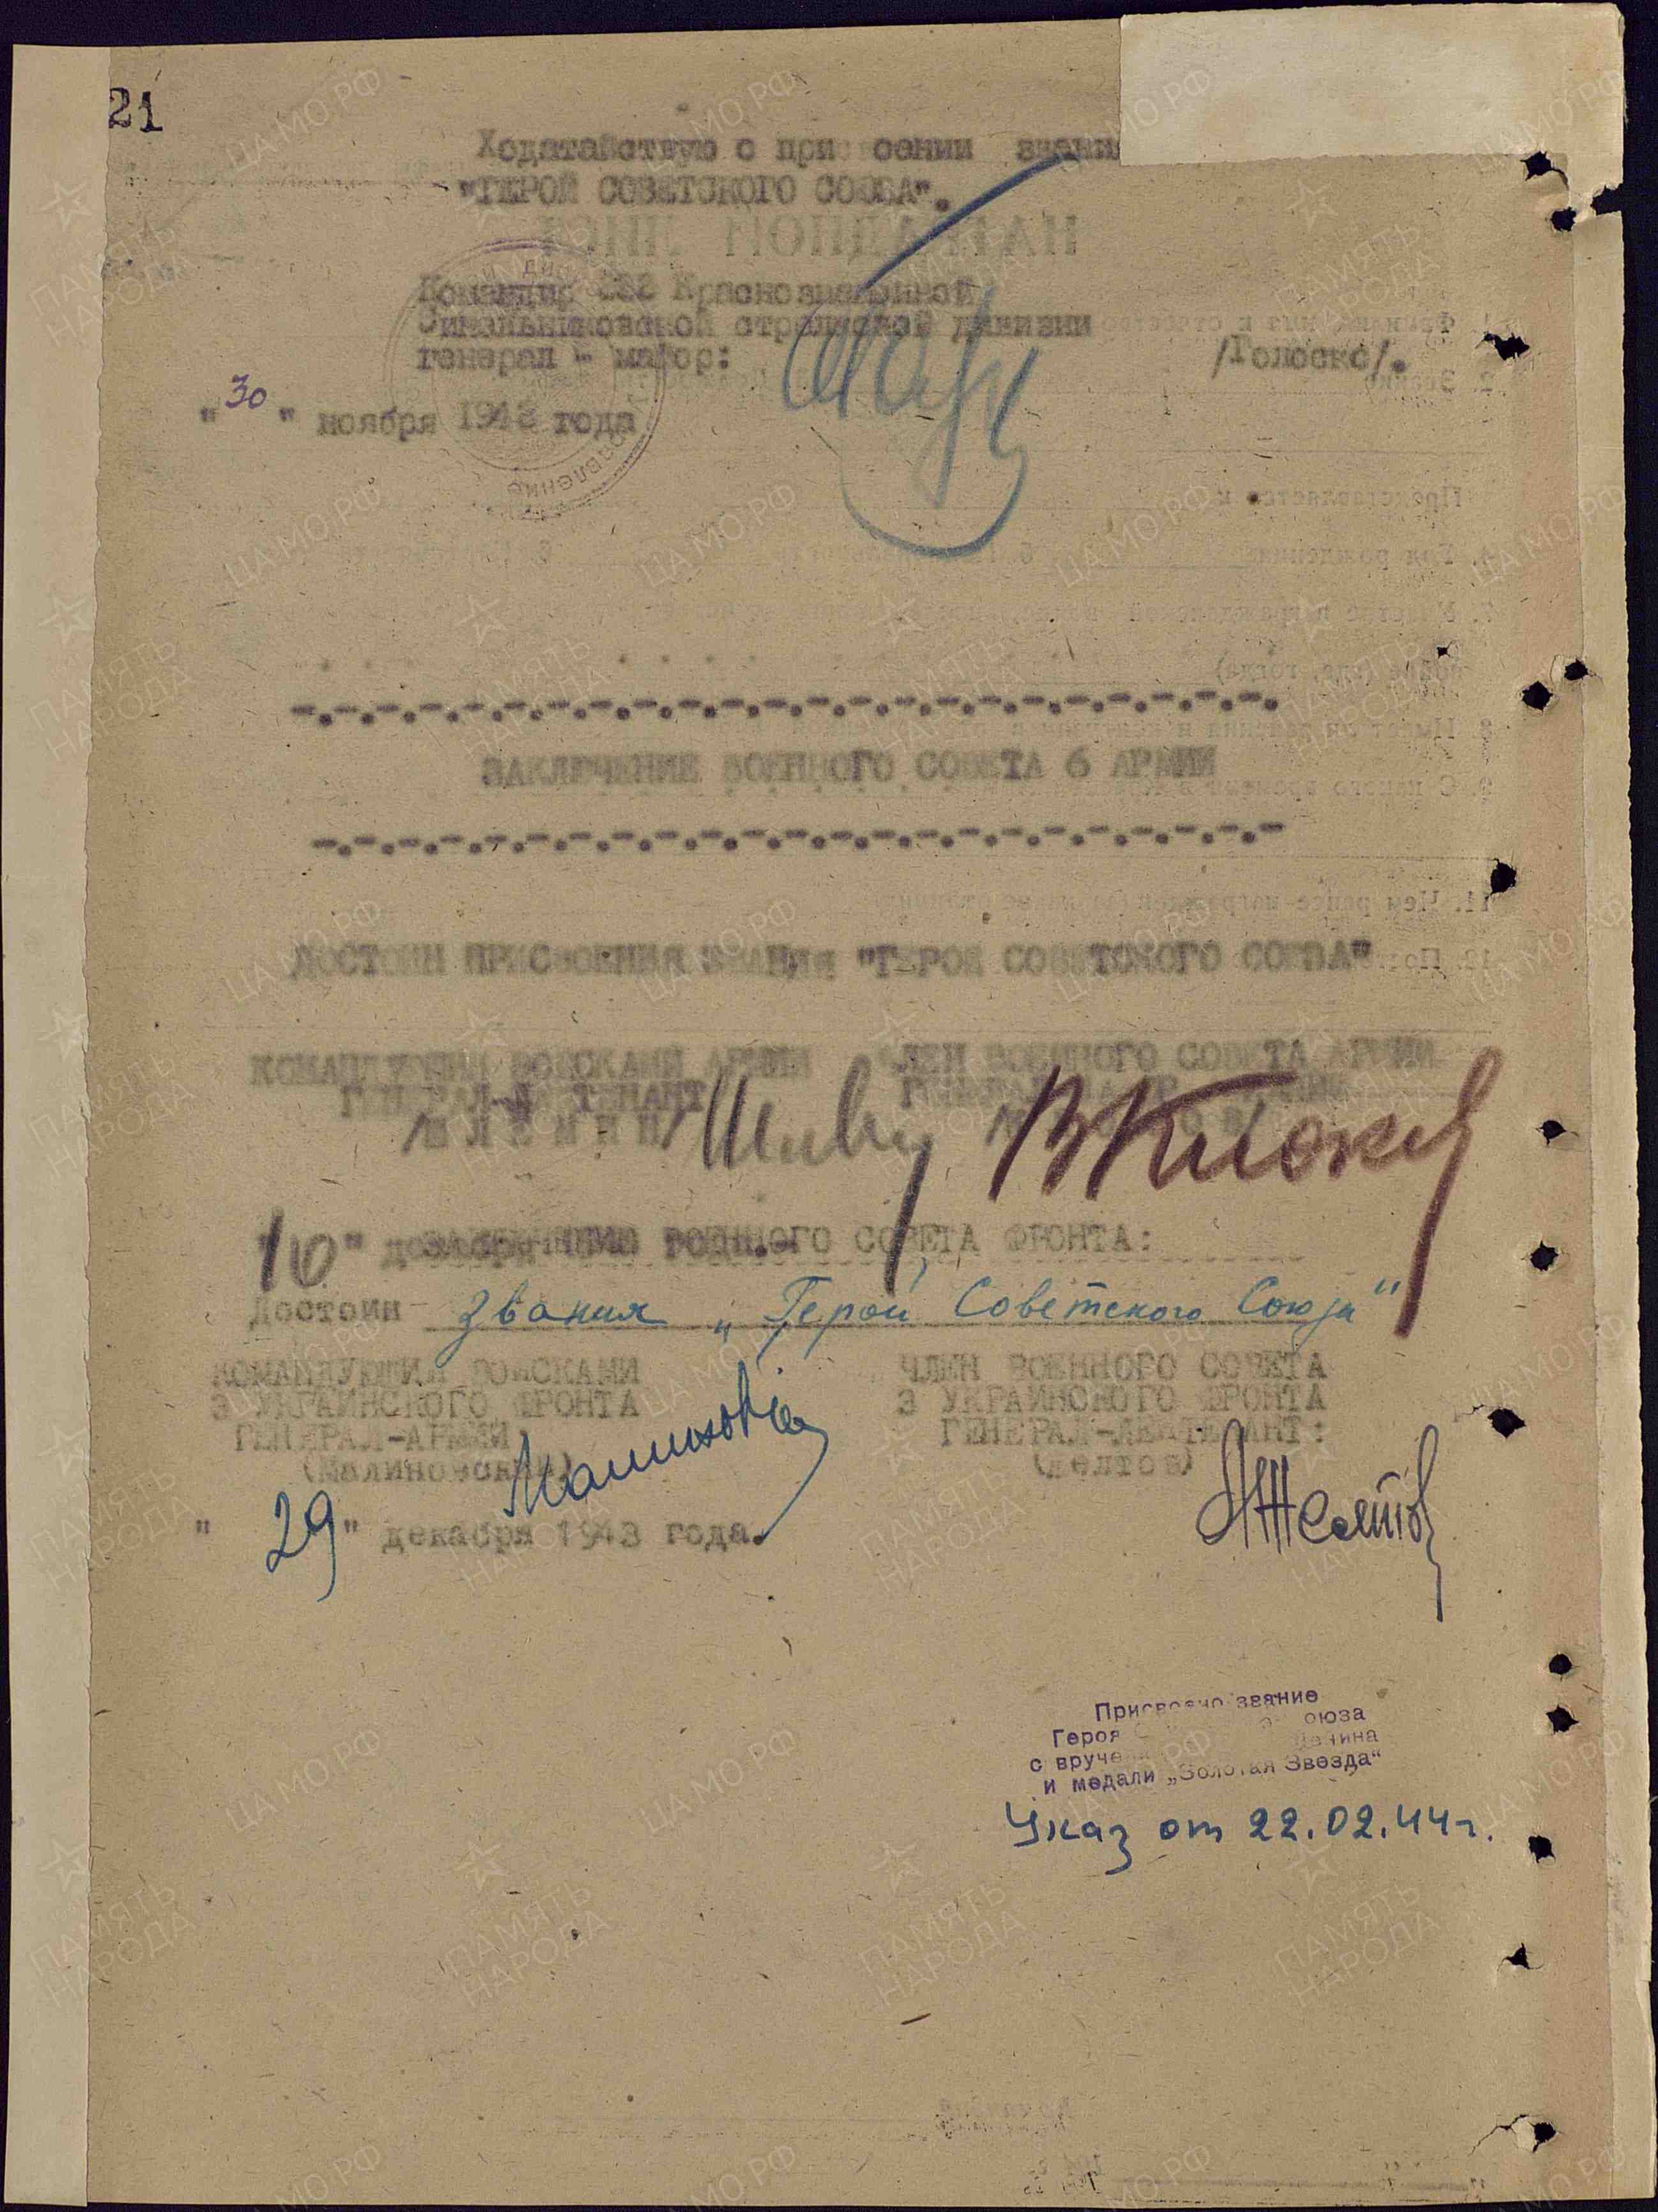 21
Ходатайствую о присоении звани
"ГЕРОЙ СОВЕТСКОГО СОЮЗА".
Командир Краснознаменной
Синельниковской стрелковой дивизии
генерал - майор: /Голоско/.
"30" ноября 1943 года
ЗАКЛЮЧЕНИЕ ВОЕННОГО СОВЕТА 6 АРМИИ
ДОСТОИН ПРИСВОЕНИЯ ЗВАНИЯ "ГЕРОЯ СОВЕТСКОГО СОЮЗА"
КОМАНДУЮЩИЙ ВОЙСКАМИ АРМИИ ЧЛЕН ВОЕННОГО СОВЕТА АРМИИ
ГЕНЕРАЛ-ЛЕЙТЕНАНТ
/ШЛЕМИН/
10" ВОЕННОГО СОВЕТА ФРОНТА:
Достоин звания „Герой Советского Союза"
КОМАНДУЮЩИЙ ВОЙСКАМИ ЧЛЕН ВОЕННОГО СОВЕТА
3 УКРАИНСКОГО ФРОНТА 3 УКРАИНСКОГО ФРОНТА
ГЕНЕРАЛ-АРМИИ ГЕНЕРАЛ-ЛЕЙТЕНАНТ:
(Малиновский) (Желтов)
"29" декабря 1943 года.
Присвоено звание
Героя оюза
с вруче
и медали „Золотая Звезда"
Указ от 22.02.44г.